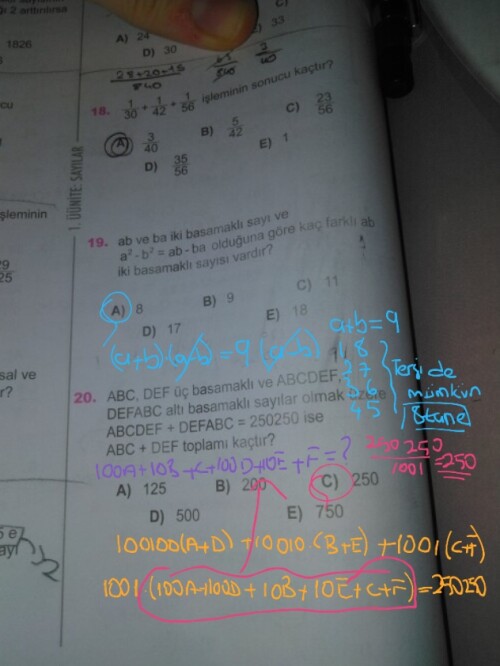 ğı 2 arttırılırsa
1826
cu
şleminin
29
25
sal ve
r?
1. ÜNİTE: SAYILAR
C)
A) 24
33
D) 30
28+20+15
840
2
40
18. 1/30 + 1/42 + 1/56 işleminin sonucu kaçtır?
A) 3/40
B) 5/42
C) 23/56
D) 35/56
E) 1
19. ab ve ba iki basamaklı sayı ve
a² - b² = ab - ba olduğuna göre kaç farklı ab
iki basamaklı sayısı vardır?
A) 8
B) 9
C) 11
D) 17
E) 18
a+b=9
(a+b)(a-b) = 9(a-b)
1 8
2 7
3 6
4 5
Tersi de
mümkün
8 tane
20. ABC, DEF üç basamaklı ve ABCDEF,
DEFABC altı basamaklı sayılar olmak üzere
ABCDEF + DEFABC = 250250 ise
ABC + DEF toplamı kaçtır?
250 250
1001
=250
100A+10B+C+100D+10E+F=?
A) 125
B) 200
C) 250
D) 500
E) 750
100100(A+D)+10010(B+E)+1001(C+F)
1001.(100A+100D+10B+10E+C+F)=250250